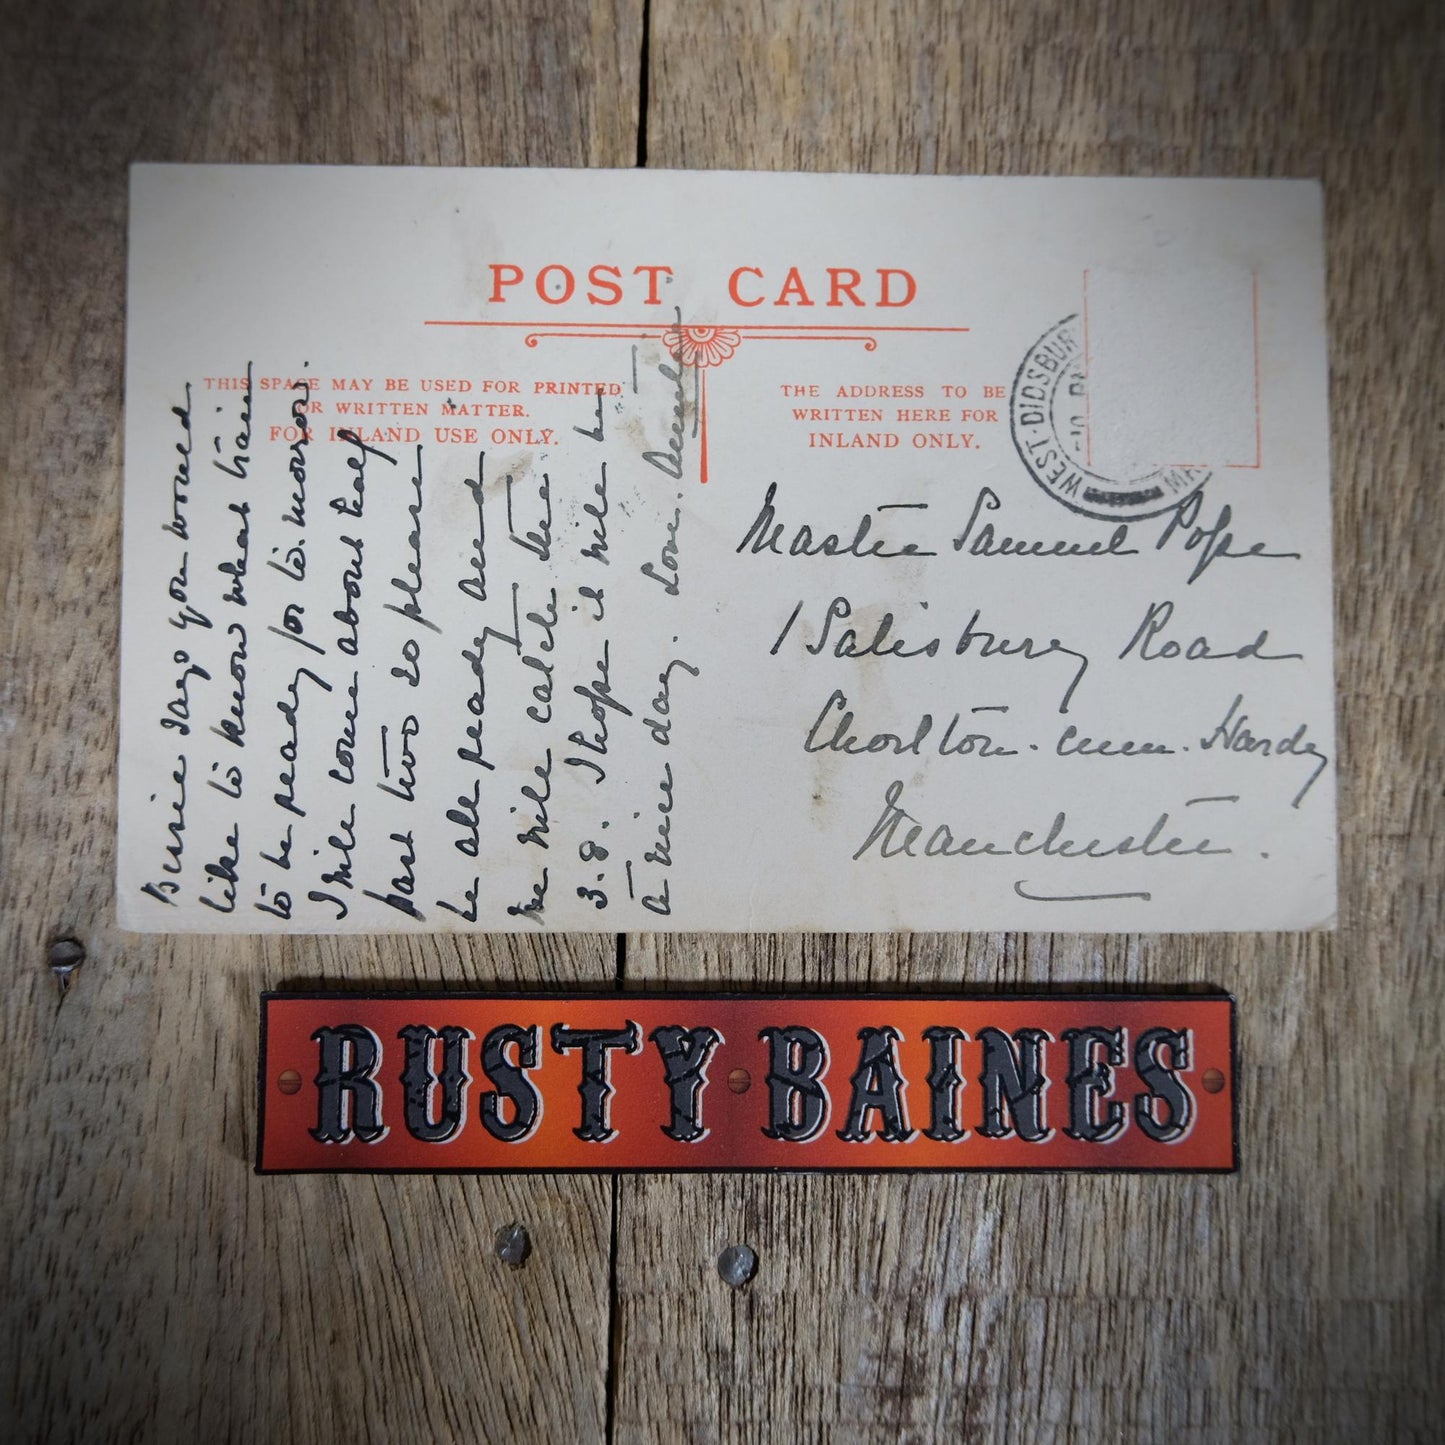 POST CARD
THIS SPACE MAY BE USED FOR PRINTED
OR WRITTEN MATTER.
FOR INLAND USE ONLY.
THE ADDRESS TO BE
WRITTEN HERE FOR
INLAND ONLY.
WEST·DIDSBURY
Bessie says you would
like to know what train
to be ready for to. morrow.
I will come about half
past two so please
be all ready and
we will catch the
3.8. I hope it will be
a nice day. Love.
Master Samuel Pope
1 Salisbury Road
Chorlton. cum. Hardy
Manchester.
RUSTY BAINES